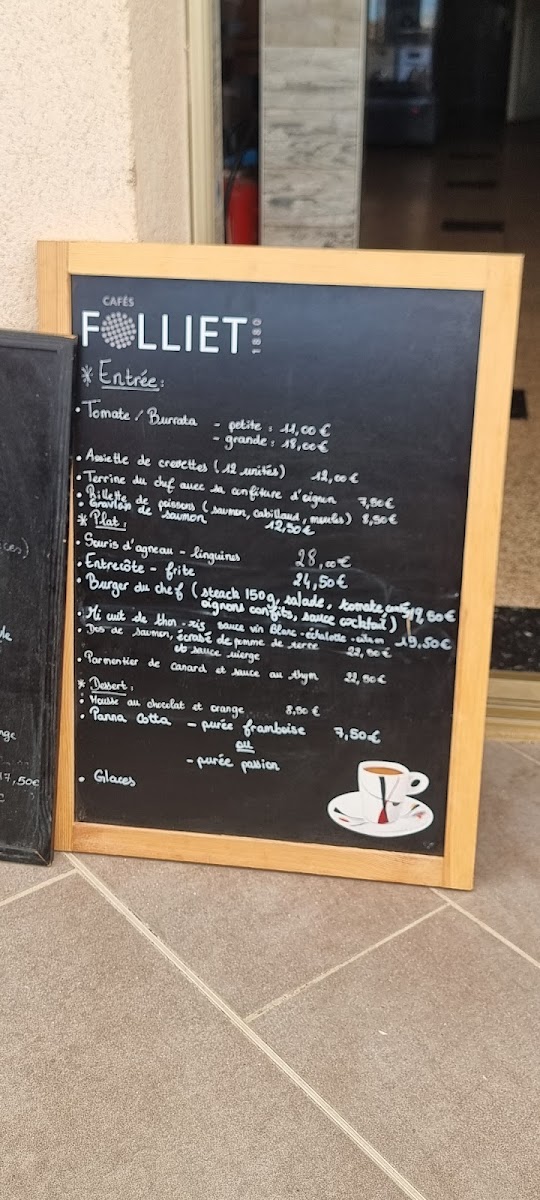 CAFÉS
FOLLIET
1880
* Entrée :
• Tomate / Burrata - petite : 11,00 €
- grande : 18,00 €
• Assiette de crevettes (12 unités) 12,00 €
• Terrine du chef avec sa confiture d'oignon 7,50 €
• Rillette de poissons (saumon, cabillaud, moules) 8,50 €
• Gravlax de saumon 12,50 €
* Plat :
• Souris d'agneau - linguines 28,00 €
• Entrecôte - frite 24,50 €
• Burger du chef (steack 150g, salade, tomate
oignons confits, sauce cocktail)
• Mi cuit de thon - riz sauce vin Blanc - échalotte - citron 19,50 €
• Dos de saumon, écrasé de pomme de terre
et sauce vierge 22,50 €
• Parmentier de canard et sauce au thym 22,50 €
* Dessert :
• Mousse au chocolat et orange 8,50 €
• Panna Cotta - purée framboise 7,50 €
ou
- purée passion
• Glaces
17,50€